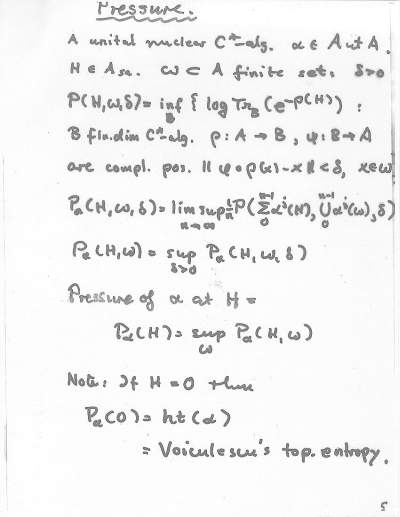 Pressure.
A unital nuclear C*-alg. α ∈ Aut A.
H ∈ A_sa. ω ⊂ A finite set. δ>0
P(H,ω,δ) = inf_B { log Tr_B (e^{-ρ(H)}) :
B fin.dim C*-alg. ρ: A → B, ψ: B → A
are compl. pos. ‖ψ∘ρ(x)-x‖<δ, x∈ω}
P_α(H,ω,δ) = lim sup_{n→∞} 1/n P(Σ_0^{n-1} α^i(H), ∪_0^{n-1} α^i(ω), δ)
P_α(H,ω) = sup_{δ>0} P_α(H,ω,δ)
Pressure of α at H =
P_α(H) = sup_ω P_α(H,ω)
Note: If H = 0 then
P_α(0) = ht(α)
= Voiculescu's top. entropy.
5